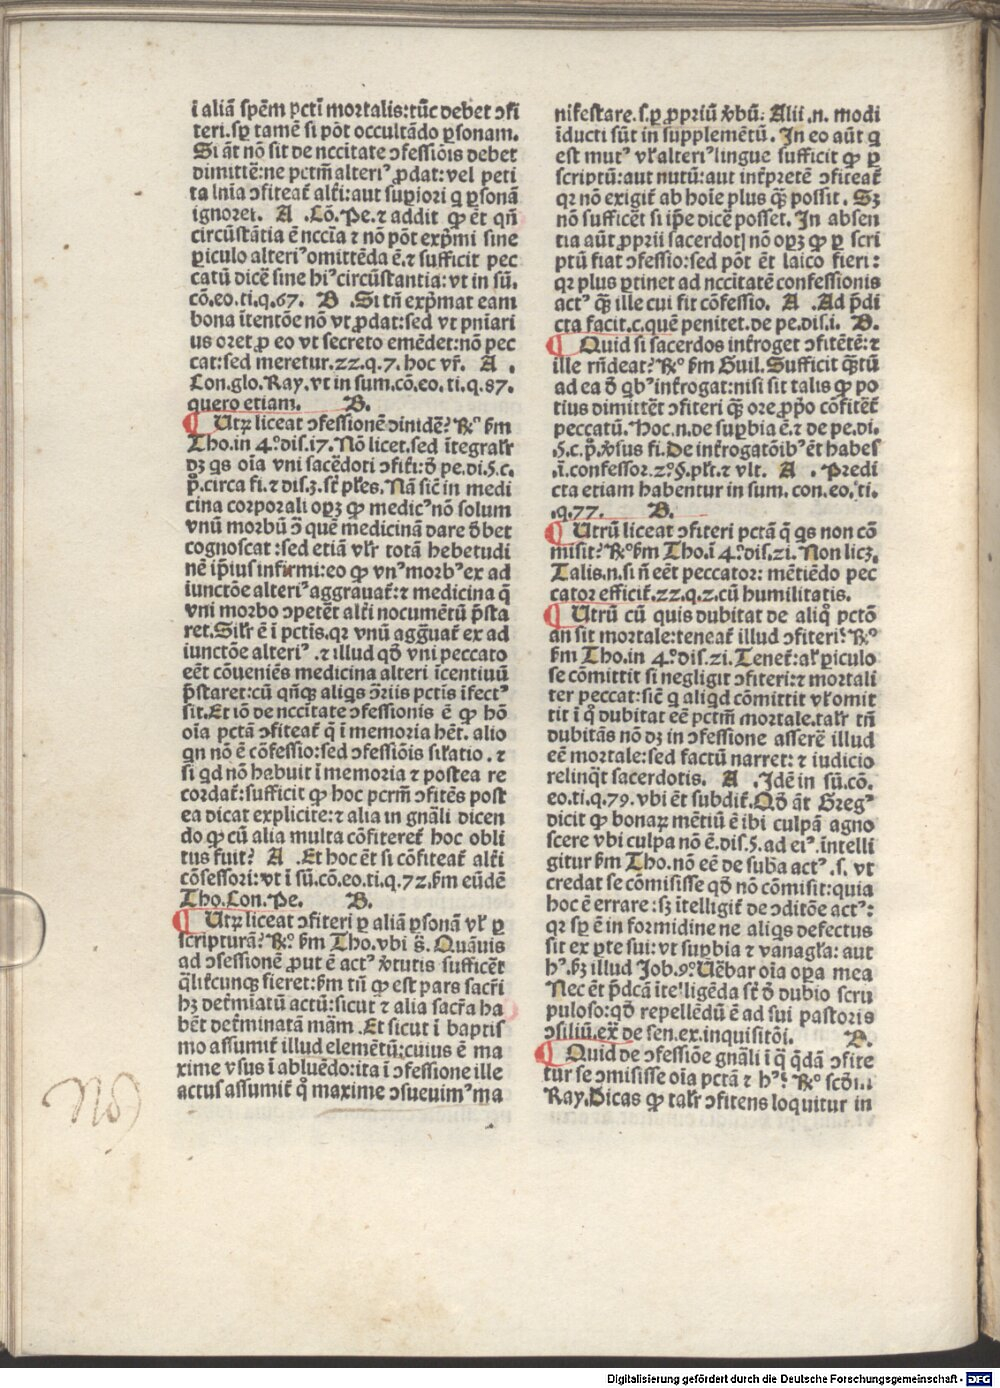 ī aliā spēm pctī mortalis: tūc debet ↄfi
teri. sꝫ tamē si pōt occultādo ꝑsonam.
Si āt nō sit de nccitate ↄfessiōis debet
dimitte᷑: ne pctm̄ alteriꝰ ꝓdat: vel peti
ta lnīa ↄfiteat᷑ alt᷑i: aut suꝑiori q ꝑsonā
ignoret. A .Cō. Pe. ⁊ addit ꝙ ēt qn̄
circūstātia ē nccīa ⁊ nō pōt exp̄mi sine
ꝑiculo alteriꝰ omittēda ē. ⁊ sufficit pec
catū dicē sine hiꝰ circūstantia: vt in sū.
cō. eo. ti. q. 67. B .Si tn̄ exp̄mat eam
bona ītentōe nō vt ꝓdat: sed vt pniari
us oret ꝓ eo vt secreto emēdet: nō pec
cat: sed meretur. 22. q. 7. hoc vr̄. A .
Con. glo. Ray. vt in sum. cō. eo. ti. q. 87.
quero etiam. B.
¶ Utꝝ liceat ↄfessionē diuidē? Rº ẜm
Tho. in 4º dis. 17. Nō licet. sed ītegralr̄
dꝫ qs oīa vni sacēdoti ↄfit᷑i: d̄ pe. di. 5. c.
p̄. circa fi. ⁊ dis. 3. st᷑ pl᷑es. Nā sic̄ in medi
cina corporali opꝫ ꝙ medicꝰ nō solum
vnū morbū ↄ̄ quē medicinā dare d̄bet
cognoscat: sed etiā vl᷑r totā hebetudi
nē ip̄ius infirmi: eo ꝙ vnꝰ morbꝰ ex ad
iunctōe alteriꝰ aggrauat᷑: ⁊ medicina q̄
vni morbo ↄpetēt alt᷑i nocumētū p̄sta
ret. Sil᷑r ē ī pctis. qr vnū agg̃uat᷑ ex ad
iunctōe alteriꝰ. ⁊ illud qd̄ vni peccato
eēt cōueniēs medicina alteri īcentiuū
p̄staret: cū qn̄qꝫ aliqs ↄ̄riis pctis īfectꝰ
sit. Et iō de nccitate ↄfessionis ē ꝙ hō
oīa pctā ↄfiteat᷑ q̄ ī memoria hēt. alio
qn nō ē cōfessio: sed ↄfessiōis sil᷑atio. ⁊
si qd nō habuit ī memoria ⁊ postea re
cordat᷑: sufficit ꝙ hoc pctm̄ ↄfitēs post
ea dicat explicite: ⁊ alia in gnāli dicen
do ꝙ cū alia multa cōfiteret᷑ hoc obli
tus fuit? A .Et hoc ēt si cōfiteat᷑ alt᷑i
cōfessori: vt ī sū. cō. eo. ti. q. 72. ẜm eūdē
Tho. Con. Pe. B.
¶ Utꝝ liceat ↄfiteri ꝑ aliā ꝑsonā vl᷑ ꝑ
scripturā? Rº ẜm Tho. vbi s̄. Quāuis
ad ↄfessionē ꝓut ē actꝰ v̄tutis sufficēt
q̄lit᷑cunqꝫ fieret: ẜm tn̄ ꝙ est pars sacr̄i
hꝫ det᷑mīatū actū: sicut ⁊ alia sacr̄a ha
bēt det᷑minatā mām. Et sicut ī baptis
mo assumit᷑ illud elemētū: cuius ē ma
xime vsus ī abluēdo: ita ī ↄfessione ille
actus assumit᷑ q̊ maxime ↄsueuimꝰ ma
nifestare. s. ꝑ ꝓpriū v̄bū. Alii .n. modi
īducti sūt in supplemētū. In eo aūt q
est mutꝰ vl᷑ alteriꝰ lingue sufficit ꝙ ꝑ
scriptū: aut nutū: aut int᷑pretē ↄfiteat᷑
qr nō exigit᷑ ab hoīe plus q̄ꝫ possit. Sꝫ
nō sufficēt si ip̄e dicē posset. In absen
tia aūt ꝓprii sacerdotꝭ nō opꝫ ꝙ ꝑ scri
ptū fiat ↄfessio: sed pōt ēt laico fieri:
qr plus ꝑtinet ad nccitatē confessionis
actꝰ q̄ꝫ ille cui fit cōfessio. A .Ad p̄di
cta facit. c. quē penitet. de pe. dis. i. B.
¶ Quid si sacerdos int᷑roget ↄfitētē: ⁊
ille rn̄deat? Rº ẜm Guil. Sufficit q̄ꝫtū
ad ea d̄ qbꝰ int᷑rogat: nisi sit talis ꝙ po
tius dimittēt ↄfiteri q̄ꝫ ore ꝓp̄o cōfitēt᷑
peccatū. Hoc. n. de suꝑbia ē. ⁊ de pe. di.
5. c. p̄. v̄sus fi. De int᷑rogatōibꝰ ēt habes
.ī. confessor. 2º §. pl᷑t. ⁊ vlt. A .Predi
cta etiam habentur in sum. con. eo. ti.
.q. 77. B.
¶ Utrū liceat ↄfiteri pctā q̄ qs non cō
misit? Rº ẜm Tho. ī 4º dis. 21. Non licꝫ.
Talis. n. si n̄ eēt peccator: mētiēdo pec
cator efficit᷑. 22. q. 2. cū humilitatis.
¶ Utrū cū quis dubitat de aliq̊ pctō
an sit mortale: teneat᷑ illud ↄfiteri? Rº
ẜm Tho. in 4º dis. 21. Tenet᷑: al᷑ ꝑiculo
se cōmittit si negligit ↄfiteri: ⁊ mortali
ter peccat: sic̄ q aliqd cōmittit vl᷑ omit
tit ī q̊ dubitat eē pctm̄ mortale. tal᷑r tn̄
dubitās nō dꝫ in ↄfessione asserē illud
eē mortale: sed factū narret: ⁊ iudicio
relinq̄t sacerdotis. A .Idē in sū. cō.
eo. ti. q. 79. vbi ēt subdit᷑. Qd̄ āt Gregꝰ
dicit ꝙ bonaꝝ mētiū ē ibi culpā agno
scere vbi culpa nō ē. dis. 5. ad eiꝰ. ītelli
gitur ẜm Tho. nō eē de suba actꝰ. s. vt
credat se cōmisisse qd̄ nō cōmisit: quia
hoc ē errare: sꝫ ītelligit᷑ de ↄditōe actꝰ:
qr sꝑ ē in formidine ne aliqs defectus
sit ex ꝑte sui: vt suꝑbia ⁊ vanagl᷑a: aut
hꝰ. ẜꝫ illud Job. 9º Uēbar oīa opa mea
Nec ēt p̄dcā ītelligēda st᷑ d̄ dubio scru
puloso: qd̄ repellēdū ē ad sui pastoris
ↄsiliū. ex̄ de sen. ex. inquisitōi. B.
¶ Quid de ↄfessiōe gnāli ī q̄ q̄dā ↄfite
tur se ↄmisisse oīa pctā ⁊ hꝰ? Rº scd̄m
Ray. Dicas ꝙ tal᷑r ↄfitens loquitur in
Digitalisierung gefördert durch die Deutsche Forschungsgemeinschaft - DFG